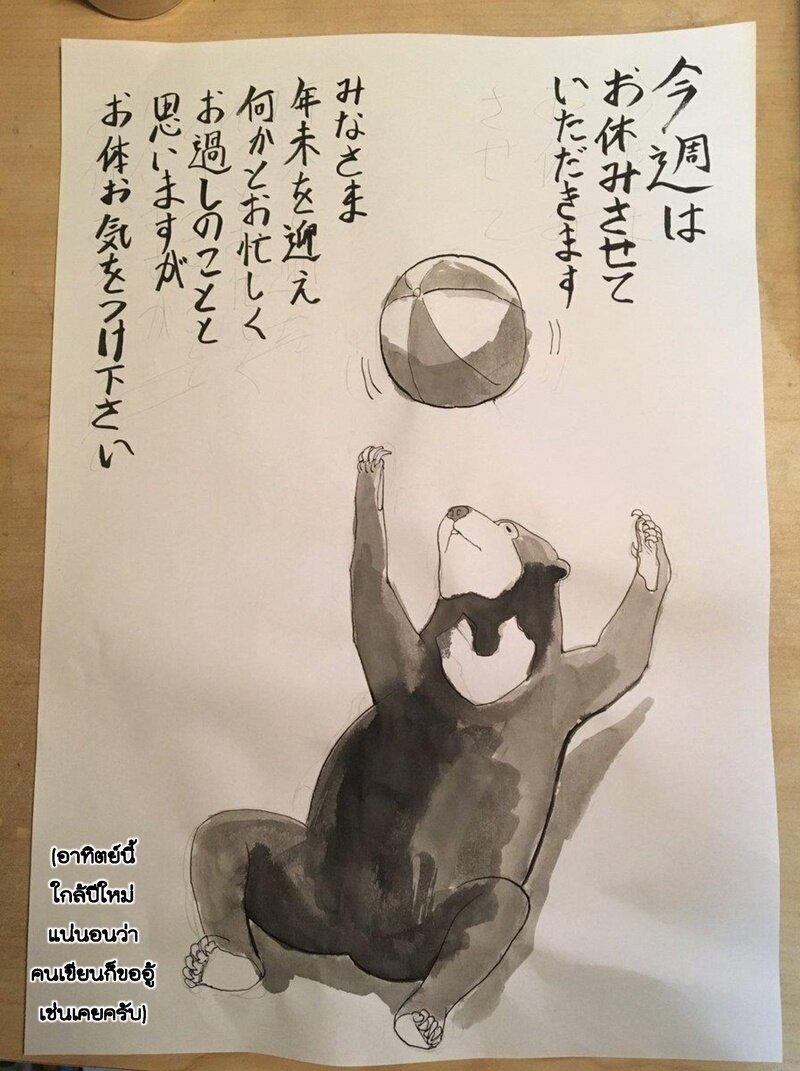 今週は
お休みさせて
いただきます
みなさま
年末を迎え
何かとお忙しく
お過しのことと
思いますが
お体お気をつけ下さい
(อาทิตย์นี้
ใกล้ปีใหม่
แน่นอนว่า
คนเขียนก็ขออู้
เช่นเคยครับ)